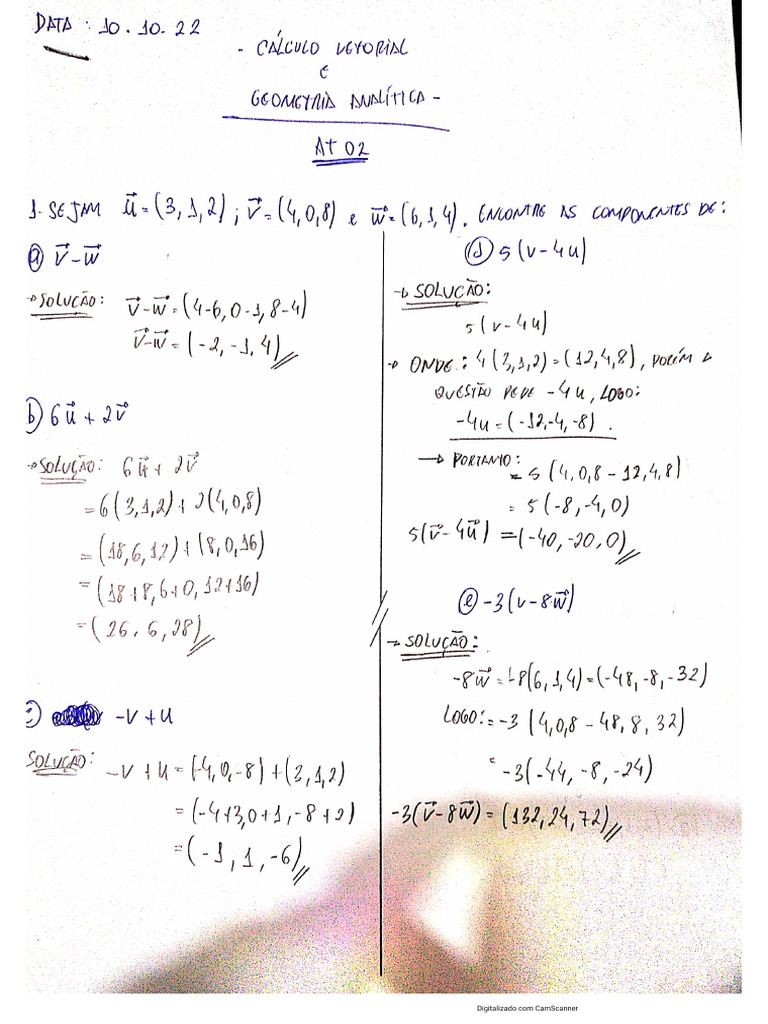 DATA : 10.10.22
- CÁLCULO VETORIAL
E
GEOMETRIA ANALÍTICA -
AT 02
1- SEJAM u⃗ = (3,1,2) ; v⃗ = (4,0,8) e w⃗ = (6,1,4). ENCONTRE AS COMPONENTES DE:
a) v⃗ - w⃗
→ SOLUÇÃO: v⃗ - w⃗ = (4-6, 0-1, 8-4)
v⃗ - w⃗ = (-2, -1, 4)//
b) 6u⃗ + 2v⃗
→ SOLUÇÃO: 6u⃗ + 2v⃗
= 6(3,1,2) + 2(4,0,8)
= (18,6,12) + (8,0,16)
= (18+8, 6+0, 12+16)
= (26, 6, 28)//
c) -v + u
SOLUÇÃO: -v + u = (-4,0,-8) + (3,1,2)
= (-4+3, 0+1, -8+2)
= (-1, 1, -6)//
d) 5(v - 4u)
→ SOLUÇÃO:
5(v - 4u)
→ ONDE: 4(3,1,2) = (12,4,8), PORÉM A
QUESTÃO PEDE -4u, LOGO:
-4u = (-12,-4,-8).
→ PORTANTO:
= 5(4,0,8 - 12,4,8)
= 5(-8,-4,0)
5(v⃗ - 4u⃗) = (-40,-20,0)//
e) -3(v - 8w⃗)
→ SOLUÇÃO:
-8w⃗ = -8(6,1,4) = (-48,-8,-32)
LOGO: = -3(4,0,8 - 48,8,32)
= -3(-44,-8,-24)
-3(v⃗ - 8w⃗) = (132,24,72)//
Digitalizado com CamScanner